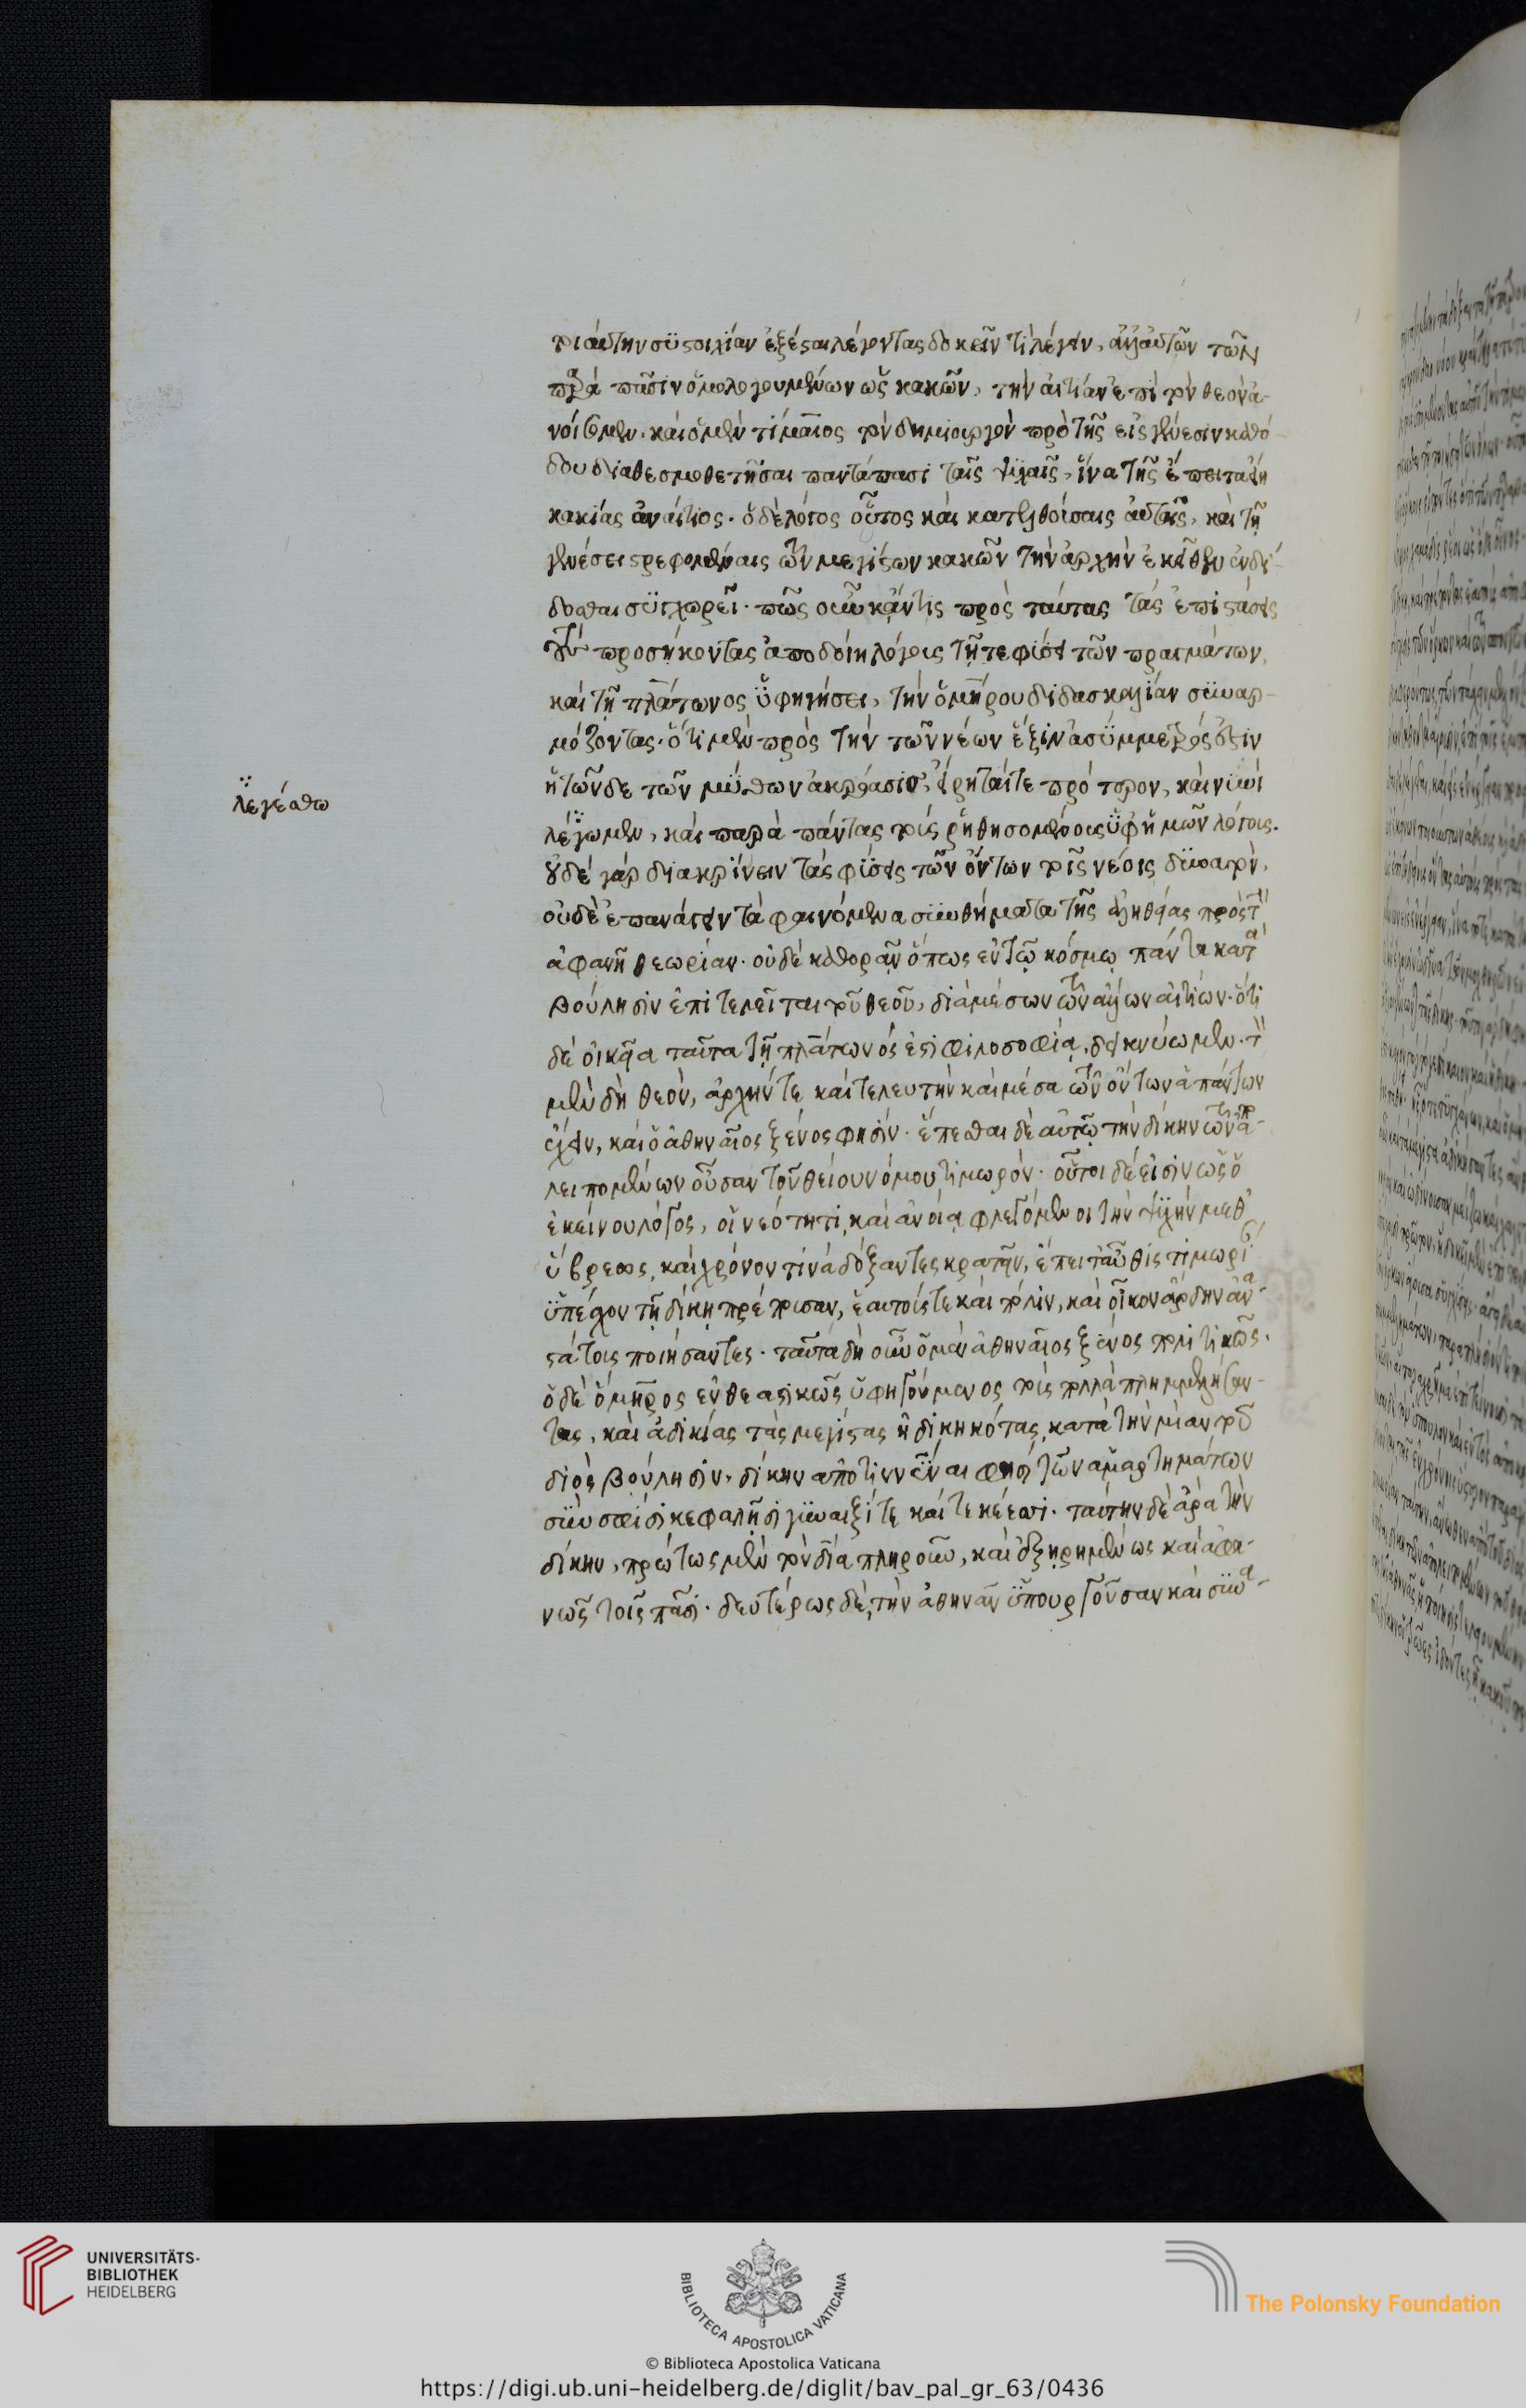 τοιάυτην συστοιχίαν ἐξέσται λέγοντας δοκεῖν τὶ λέγειν, ἀλλ' ἀυτῶν τῶν
παρὰ πᾶσιν ὁμολογουμένων ὡς κακῶν, τὴν ἀιτίαν ἐπὶ τὸν θεὸν ἀ-
νοίσομεν. καὶ ὁ μὲν τίμαιος τὸν δημιουργὸν πρὸ τῆς εἰς γένεσιν καθό-
δου διαθεσμοθετῆσαι παντάπασι ταῖς ψυχαῖς, ἵνα τῆς ἔπειτα εἴη
κακίας ἀναίτιος. ὁ δὲ λόγος οὗτος καὶ κατελθούσαις ἀυταῖς, καὶ τῇ
γενέσει στρεφομέναις τῶν μεγίστων κακῶν τὴν ἀρχὴν ἐκεῖθεν ἐνδί-
δοσθαι συγχωρεῖ. πῶς οὖν κἄν τις πρὸς ταύτας τὰς ἐπιστάσεις
προσήκοντας ἀποδοίη λόγους τῇ τε φύσει τῶν πραγμάτων,
καὶ τῇ πλάτωνος ὑφηγήσει, τὴν ὁμήρου διδασκαλίαν συναρ-
μόζοντας. ὅτι μὲν πρὸς τὴν τῶν νέων ἕξιν ἀσύμμετρός ἐστιν
ἡ τῶνδε τῶν μύθων ἀκρόασις, εἴρηταί τε πρότερον, καὶ νυνὶ
λέγωμεν, καὶ παρὰ πάντας τοὺς ῥηθησομένους ὑφ' ἡμῶν λόγους.
οὐδὲ γὰρ διακρίνειν τὰς φύσεις τῶν ὄντων τοῖς νέοις δυνατὸν,
οὐδὲ ἐπανάγειν τὰ φαινόμενα συνθήματα τῆς ἀληθείας πρὸς τὴν
ἀφανῆ θεωρίαν. οὐδὲ καθορᾷν ὅπως ἐν τῷ κόσμῳ πάντα κατὰ
βούλησιν ἐπιτελεῖται τοῦ θεοῦ, διὰ μέσων τῶν ἄλλων ἀιτίων. ὅτι
δὲ ὀικεῖα ταῦτα τῇ πλάτωνός ἐστι φιλοσοφίᾳ, δεικνύωμεν. τὸν
μὲν δὴ θεὸν, ἀρχήν τε καὶ τελευτὴν καὶ μέσα τῶν ὄντων ἁπάντων
ἔχειν, καὶ ὁ ἀθηναῖος ξένος φησίν. ἕπεσθαι δὲ αὐτῷ τὴν δίκην τῶν ἀπο-
λειπομένων οὖσαν τοῦ θείου νόμου τιμωρόν. οὗτοι δέ εἰσιν ὡς ὁ
ἐκείνου λόγος, οἱ νεότητι καὶ ἀνοίᾳ φλεγόμενοι τὴν ψυχὴν μεθ'
ὕβρεως, καὶ χρόνον τινὰ δόξαντες κρατεῖν, ἔπειτ' αὖθις τιμωρίαν
ὑπέχον τῇ δίκῃ πρέπουσαν, ἑαυτούς τε καὶ πόλιν, καὶ οἶκον ἄρδην ἀνα-
στάτους ποιήσαντες. ταῦτα δὴ οὖν ὁ μὲν ἀθηναῖος ξένος πολιτικῶς.
ὁ δὲ ὅμηρος ἐνθεαστικῶς ὑφηγούμενος τοὺς πολλὰ πλημμελήσαν-
τας, καὶ ἀδικίας τὰς μεγίστας ἠδικηκότας, κατὰ τὴν μίαν τοῦ
διὸς βούλησιν, δίκην ἀποτιννύναι φησὶ τῶν ἁμαρτημάτων
σὺν σφῇσι κεφαλῇσι γυναιξί τε καὶ τεκέεσσι. ταύτην δὲ ἄρα τὴν
δίκην, πρώτως μὲν τὸν δία πληροῦν, καὶ ἐξῃρημένως καὶ ἀφα-
νῶς τοῖς πᾶσι. δευτέρως δὲ, τὴν ἀθηνᾶν ὑπουργοῦσαν καὶ συνα-
λεγέσθω
UNIVERSITÄTS-
BIBLIOTHEK
HEIDELBERG
BIBLIOTECA APOSTOLICA VATICANA
The Polonsky Foundation
© Biblioteca Apostolica Vaticana
https://digi.ub.uni-heidelberg.de/diglit/bav_pal_gr_63/0436